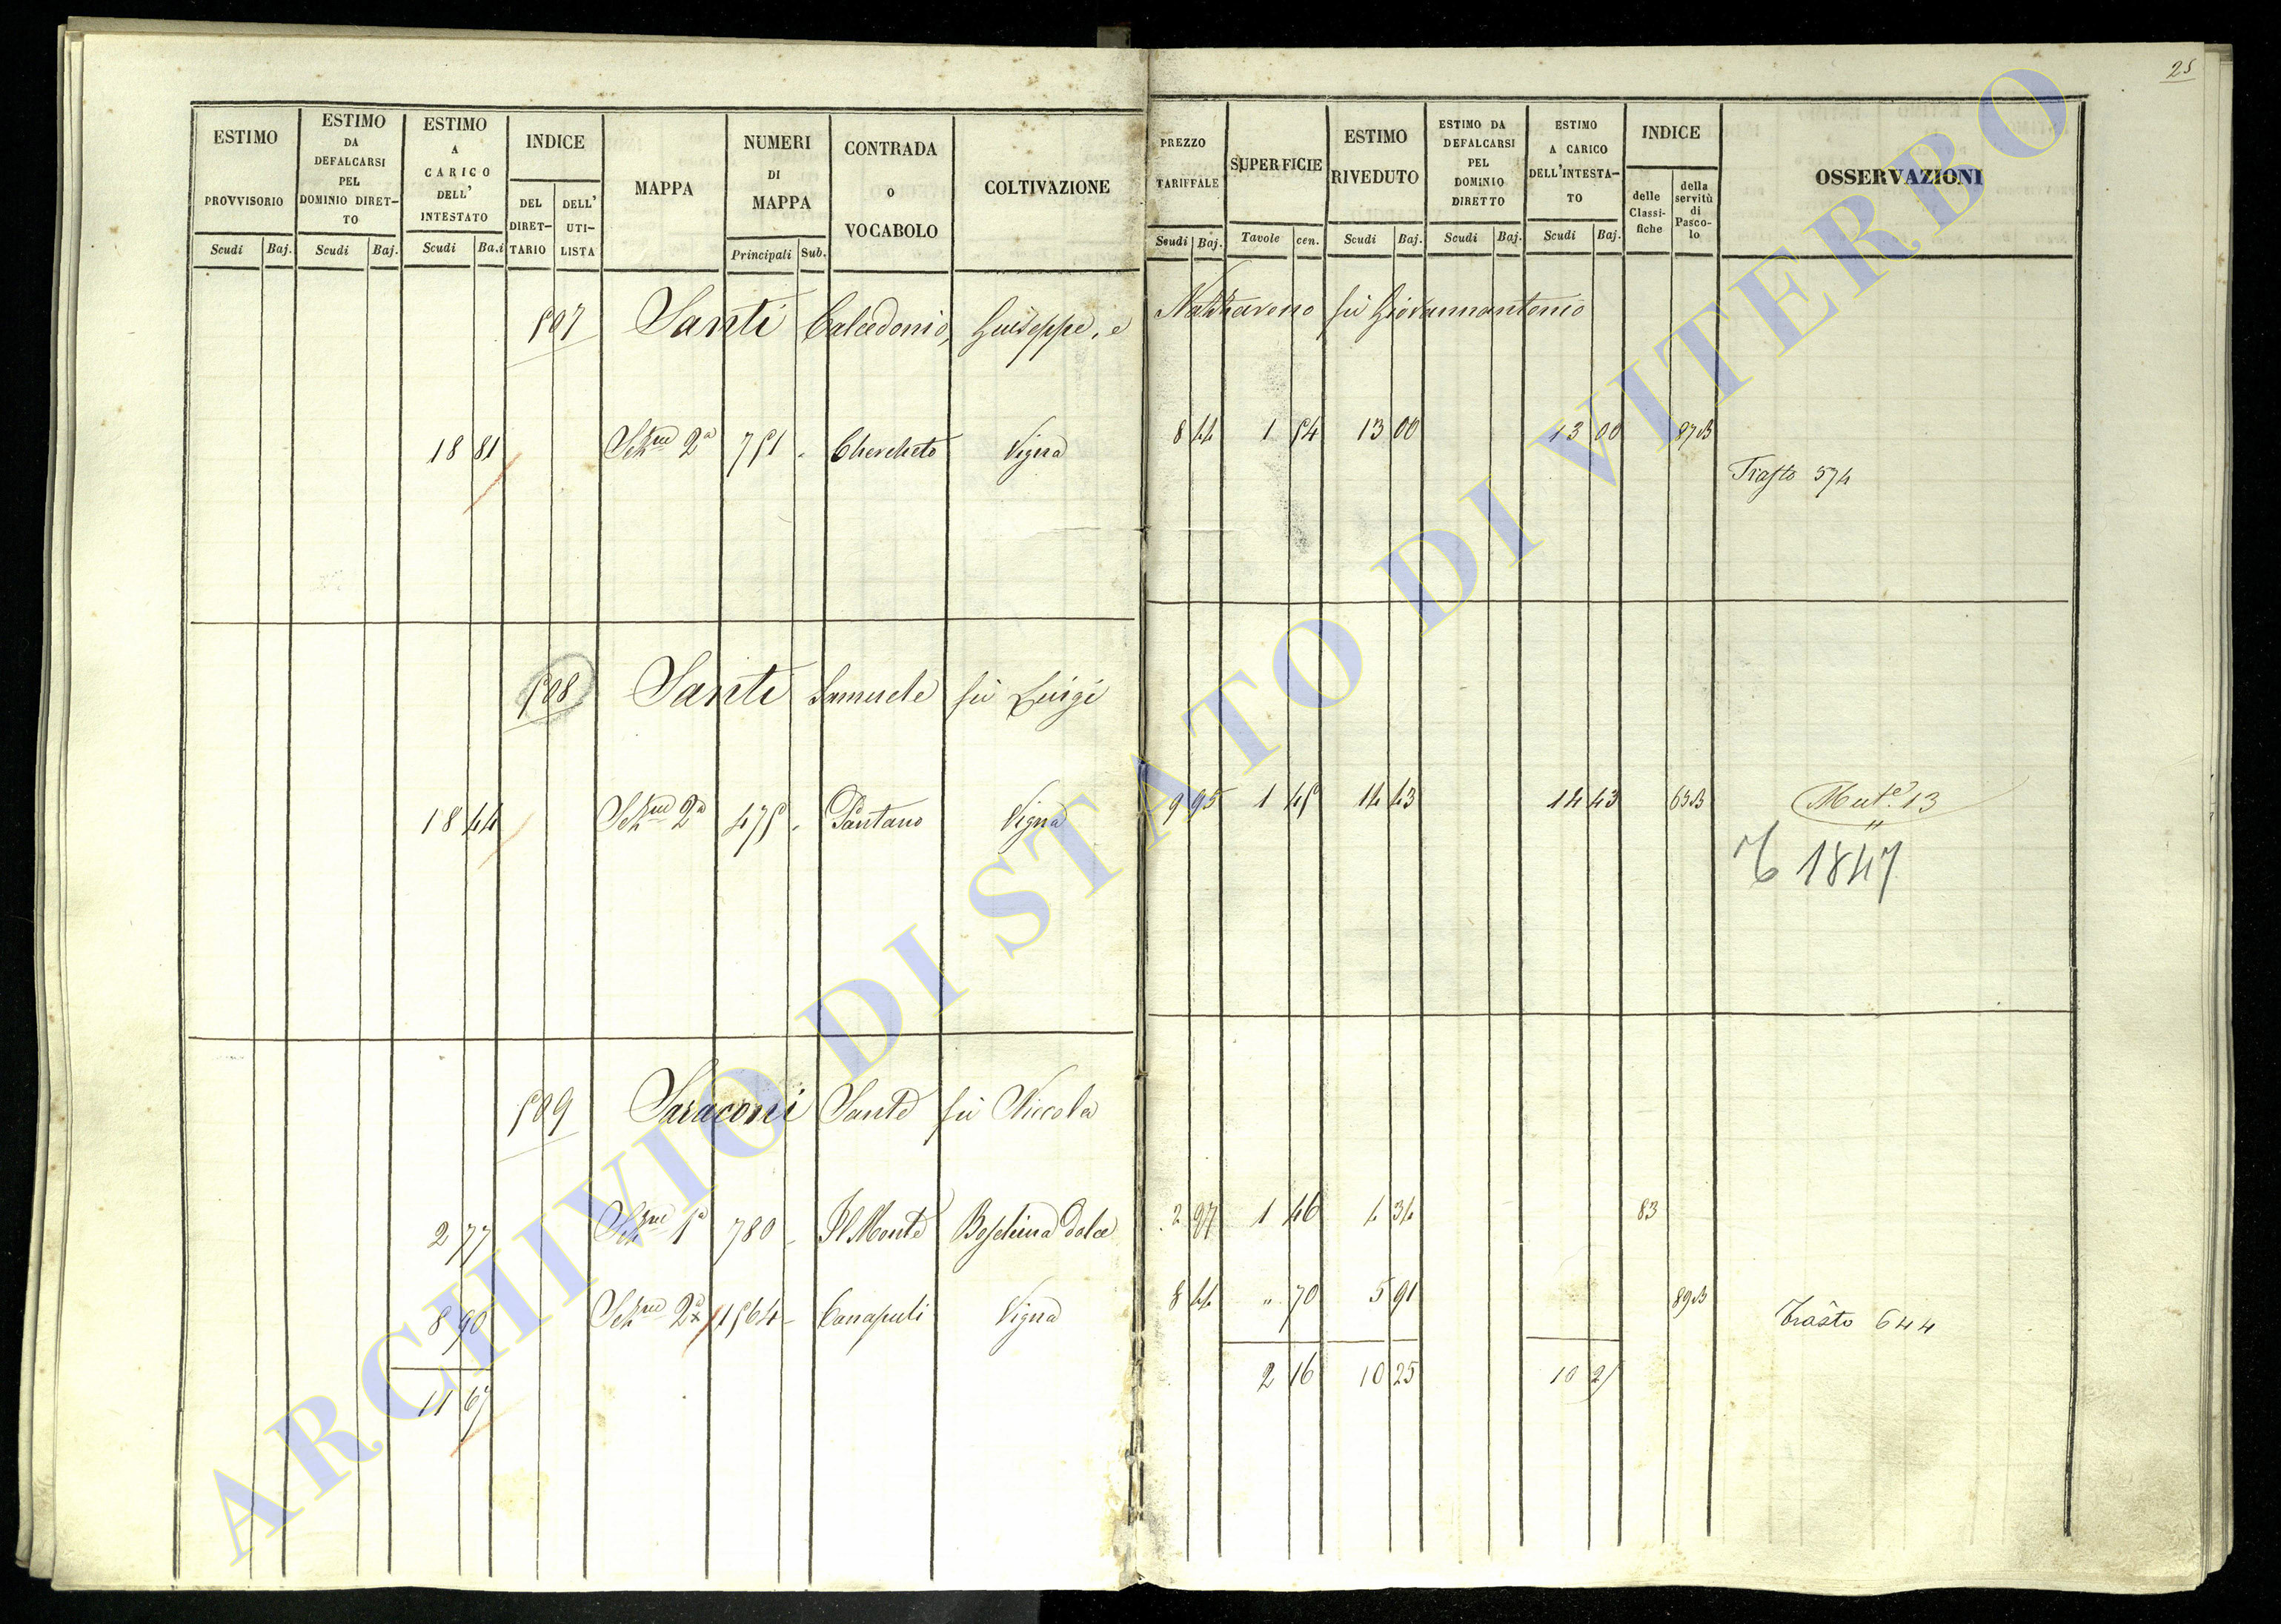 25
ESTIMO PROVVISORIO Scudi Baj.
ESTIMO DA DEFALCARSI PEL DOMINIO DIRET-TO Scudi Baj.
ESTIMO A CARICO DELL' INTESTATO Scudi Ba.i
INDICE DEL DIRET-TARIO DELL' UTI-LISTA
MAPPA
NUMERI DI MAPPA Principali Sub.
CONTRADA O VOCABOLO
COLTIVAZIONE
PREZZO TARIFFALE Scudi Baj.
SUPERFICIE Tavole cen.
ESTIMO RIVEDUTO Scudi Baj.
ESTIMO DA DEFALCARSI PEL DOMINIO DIRETTO Scudi Baj.
ESTIMO A CARICO DELL'INTESTA-TO Scudi Baj.
INDICE delle Classi-fiche della servitù di Pasco-lo
OSSERVAZIONI
507 Santi Calcedonio, Giuseppe, e Nazzareno fù Giovannantonio
18 81 Sezne 2a 751 - Chercheto Vigna 8 44 1 54 13 00 13 00 87 B
Trasto 574
508 Santi Samuele fù Luigi
18 44 Sezne 2a 475 - Pantano Vigna 9 95 1 45 14 43 14 43 63 B Mute. 13
1847
509 Saraconi Sante fù Niccola
2 77 Sezne 1a 780 - Il Monte Boschina dolce 2 97 1 46 4 34 83
8 90 Sezne 2a 1564 - Canapuli Vigna 8 44 " 70 5 91 89 B Trasto 644
11 67 2 16 10 25 10 25
ARCHIVIO DI STATO DI VITERBO